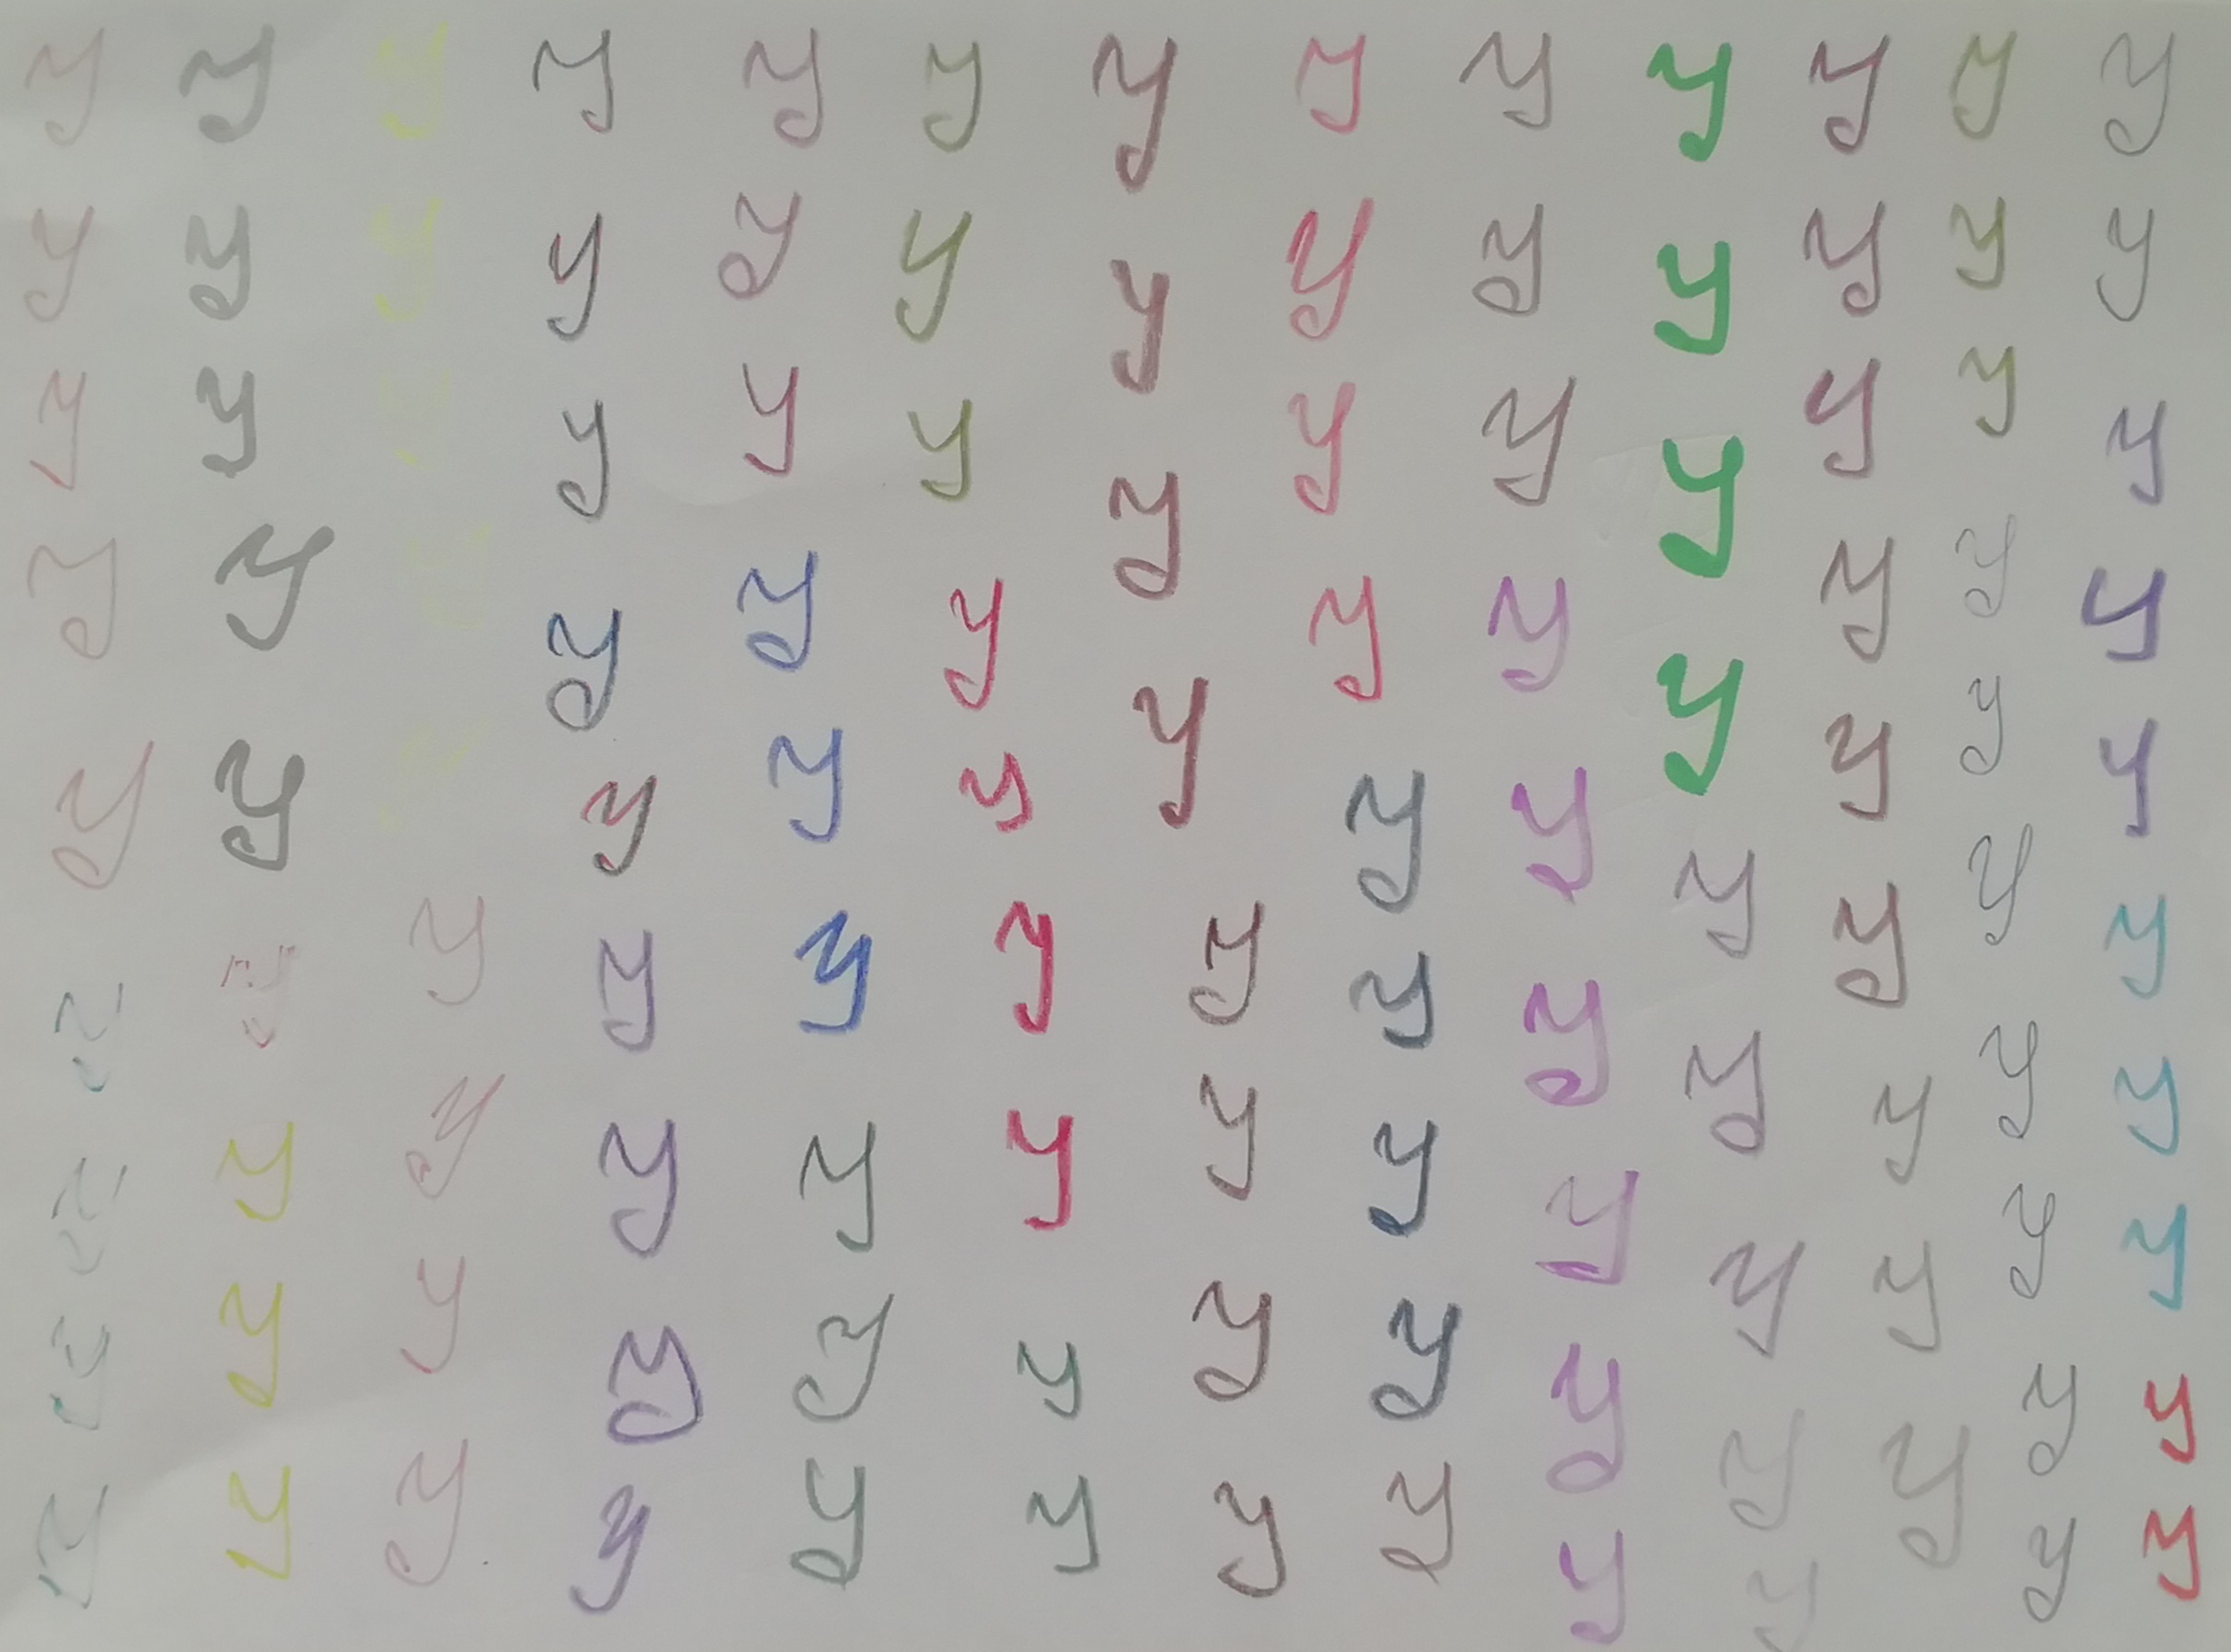 y y y y y y y y y y y y y
y y y y y y y y y y y y y
y y y y y y y y y y y y y
y y y y y y y y y y y y y
y y y y y y y y y y y y y
y y y y y y y y y y y y y
y y y y y y y y y y y y y
y y y y y y y y y y y y y
y y y y y y y y y y y y
y y